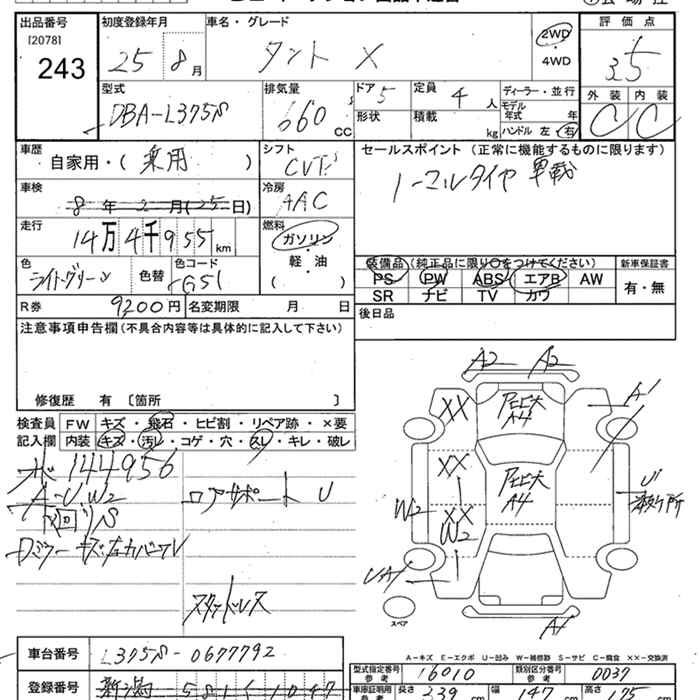 出品番号 初度登録年月 車名・グレード 評価点
[2078]
243 25 8月 タント X 2WD ・ 4WD 3.5
型式 排気量 ドア 5 定員 4人 ディーラー・並行 外装 内装
DBA-L375S 660 CC 形状 積載 kg モデル年式 年 C C
ハンドル 左 右
車歴 シフト セールスポイント (正常に機能するものに限ります)
自家用・( 乗用 ) CVT
車検 冷房 ノーマルタイヤ 車載
8年 2月(25日) AAC
走行 燃料
14万4千955km ガソリン ・ 軽・油
装備品 (純正品に限り○をつけてください) 新車保証書
色 色替 色コード PS PW ABS エアB AW 有・無
ライトグリーン G51 ( ) SR ナビ TV カワ
R券 9200円 名変期限 月 日 後日品
注意事項申告欄(不具合内容等は具体的に記入して下さい)
修復歴 有 〔箇所 〕
検査員 FW キズ・飛石・ヒビ割・リペア跡・×要
記入欄 内装 キズ・汚レ・コゲ・穴・スレ・キレ・破レ
144956
A-U.W2 ロアサポート U
スタッドレス
A2 A2
XX A1
A4
XX U
A4
W2 XX
W2
A1
スペア
A-キズ E-エクボ U-凹み W-補修跡 S-サビ C-腐食 ××-交換済
車台番号 L375S-0677792
型式指定番号 参考 16010 類別区分番号 参考 0037
登録番号 新潟 581
車庫証明用 参考 長さ 339cm 幅 147cm 高さ 175cm